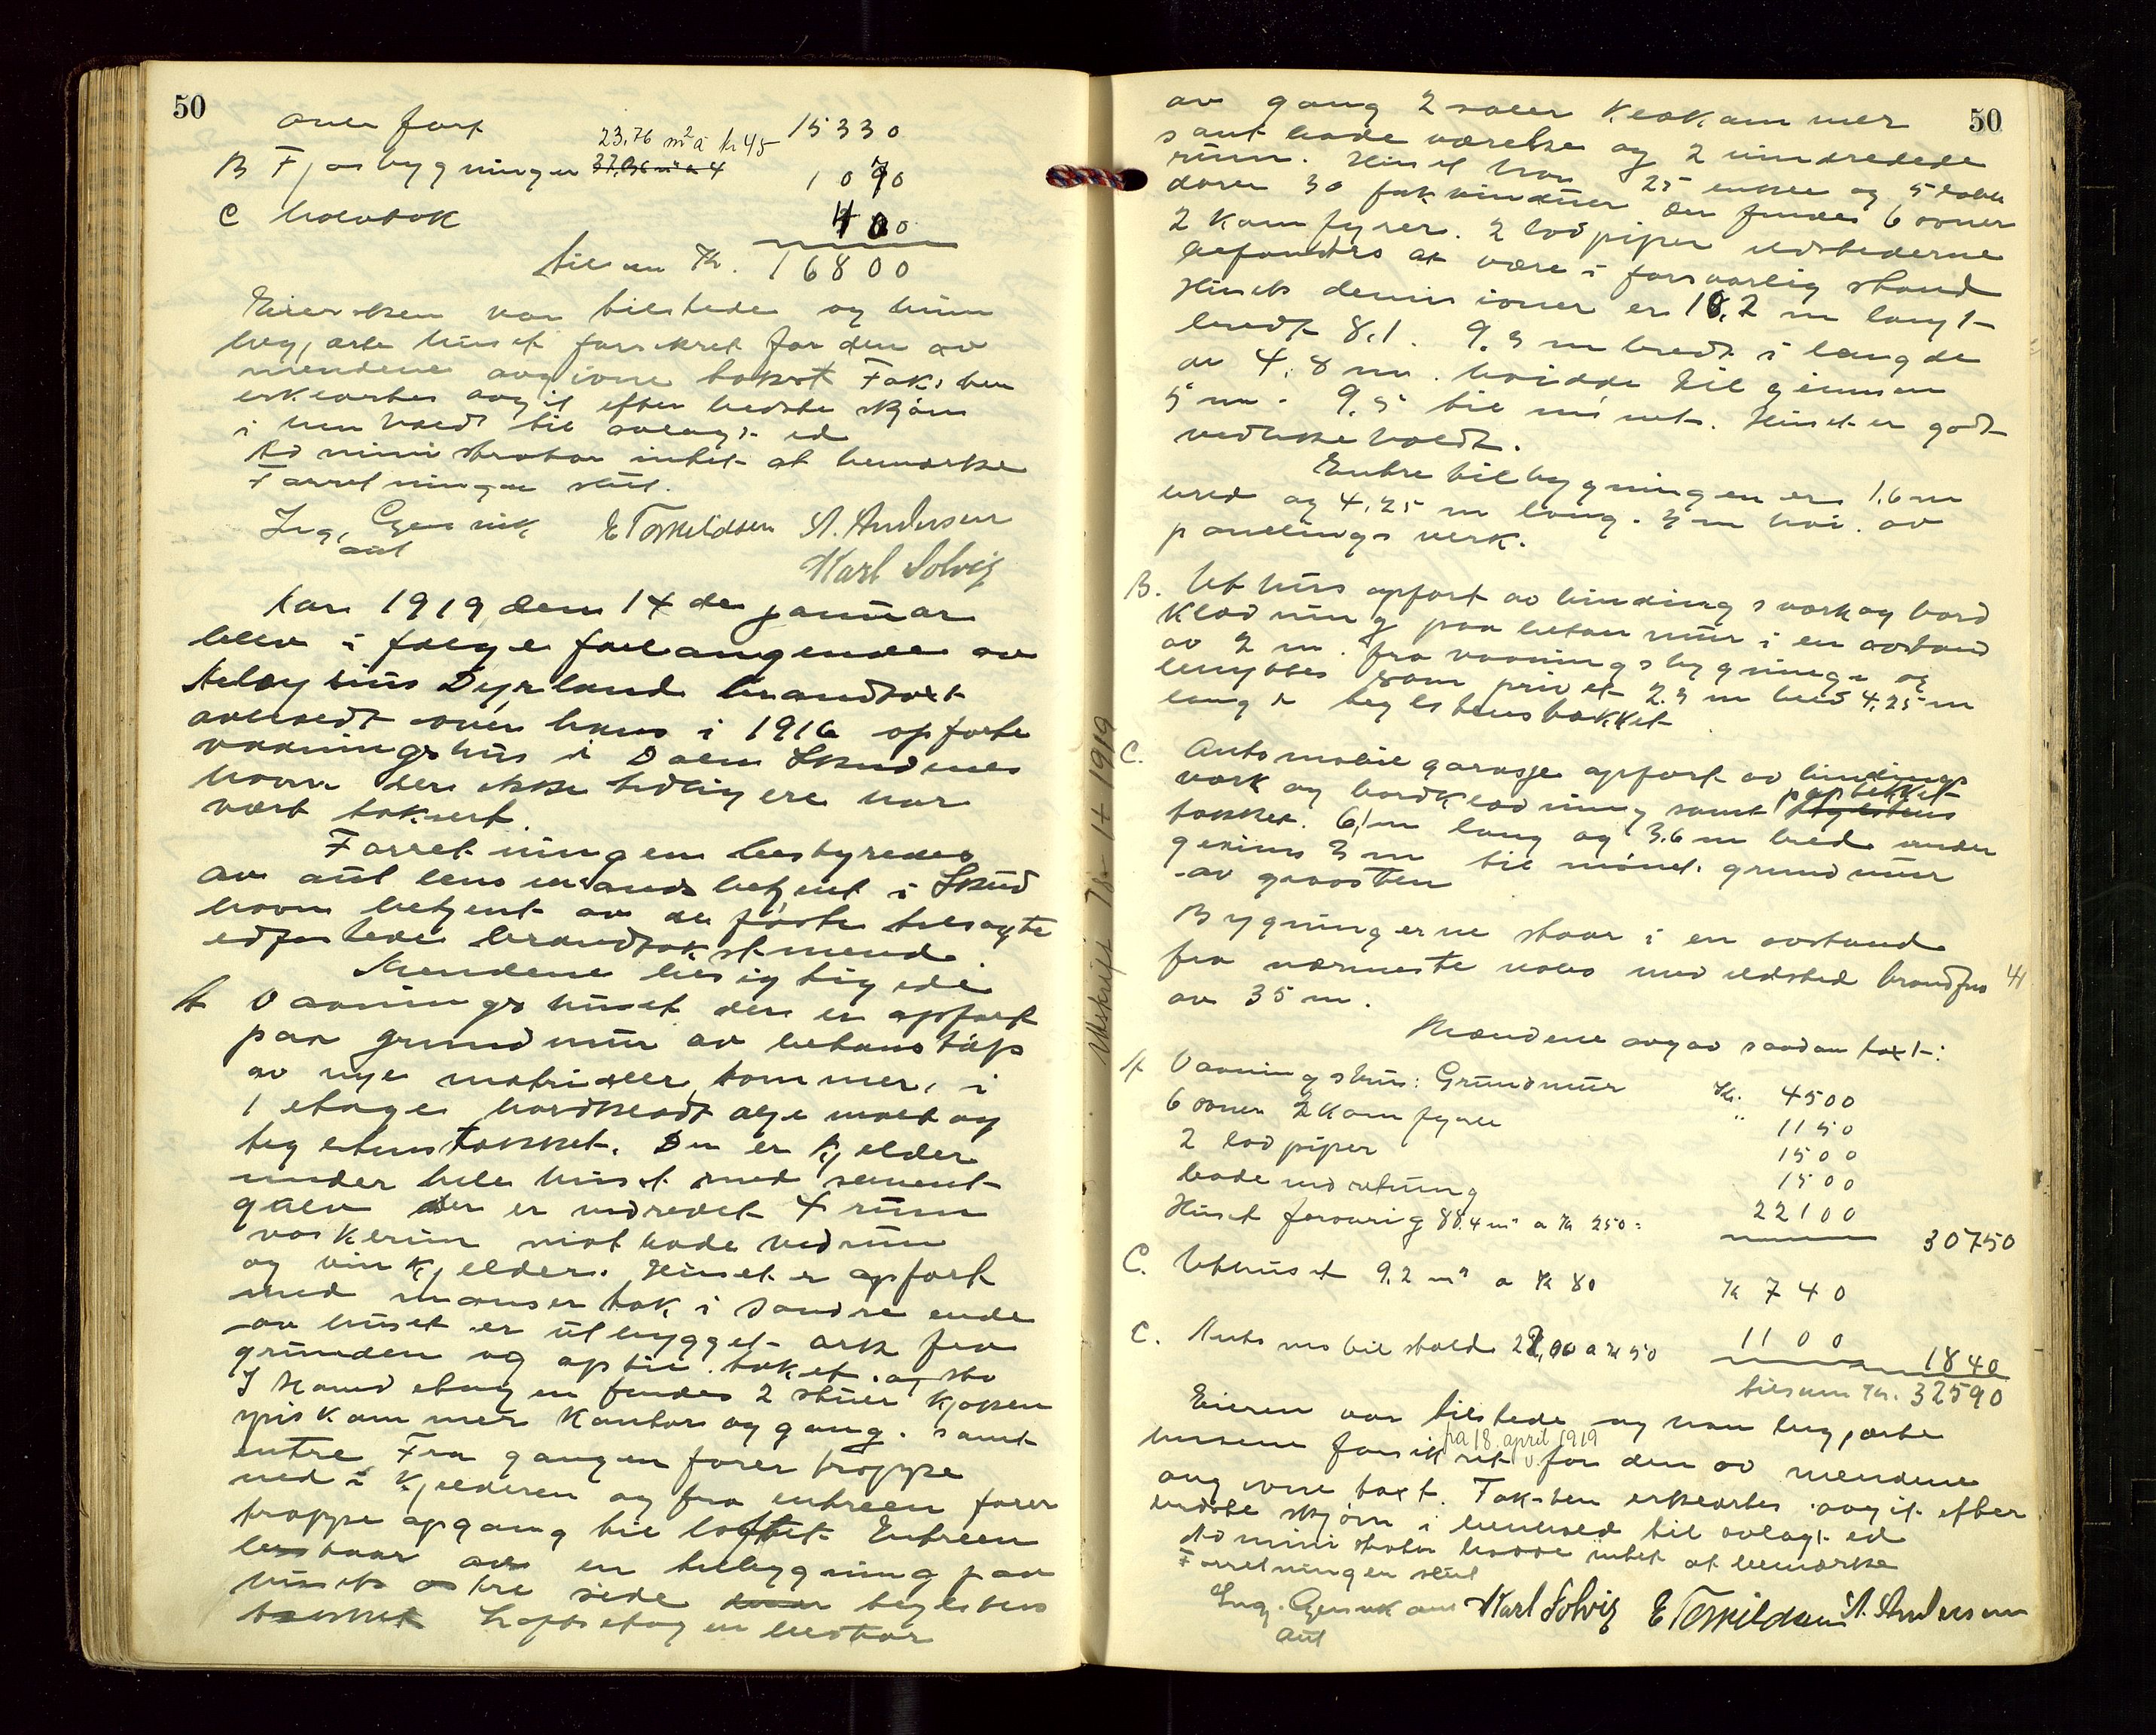 50
overført 15330
B Fjøsbygningen 23,76 m² a kr 45 1070
C halvtak 400
tilsum Kr. 16800
Eiersken var tilstede og hun
begjærte huset forsikret for den av
mendene avgivne takst Taksten
erklærtes avgit efter bedste skjøn
i henhold til avlagt ed
Administrator intet at bemærke
Forretningen slut.
Ing. Gjesvik E Torkildsen A. Andersen
aut
Karl Solvig
Aar 1919 den 14de januar
blev i følge forlangende av
Dyrland brandtaxt
avholdt over hans i 1916 opførte
vaaningshus i Dalen Skudenes
havn der ikke tidligere har
vært taksert.
Forretningen bestyredes
av aut lensmands betjent i Skud
havn betjent av de første tilsagte
edfæstede brandtakstmend.
Mendene besigtigede
A Vaaningshuset der er opført
paa grundmur av betonstøp
av nye matrialer, tømmer, i
1 etage bordklædt olje malt og
teglstenstækket. Der er kjelder
under hele huset med sement
gulv der er indredet 4 rum
vaskerum mat bode vedrum
og vinkjelder. Huset er opført
med mansertak i søndre ende
av huset er utbygget ark fra
grunden og op til taket.
I Hoved etagen findes 2 stuer kjøkken
spiskammer kontor og gang. samt
entre Fra gangen fører trappe
ned i kjelderen og fra entreen fører
trappe opgang til loftet Entreen
bestaar av en tilbygning paa
husets østre side teglstens
tækket Loftsetagen bestaar
50
av gang 2 saler klækammer
samt bade værelse og 2 uindredede
rum. Huset har 25 enkle og 5 doble
dører 30 fak vinduer der findes 6 ovner
2 Kamfyrer. 2 lod piper ildstederne
befandtes at være i forsvarlig stand
Husets demisioner er 10,2 m langt
bredt 8,1. 9.3 m bredt i længde
av 4,8 m. høidde til gjemsen
5 m. 9,5 til mønet. Huset er godt
vedlikeholdt.
Entre tilbygningen er 1,6 m
bred og 4,25 m lang. 3 m høi. av
panelings verk.
B. Uthus opført av bindingsværk og bord
klædning paa beton mur i en avstand
av 2 m. fra vaaningsbygningen og
benyttes som privet 2.3 m bred 4,25 m
lang er teglstenstækket
C. Automobil garasje opført av bindings
værk og bordklædning samt paptækket
tækket. 6,1 m lang og 3.6 m bred under
gesims 3 m til mønet. grundmur
av graasten
Bygningerne staar i en avstand
fra nærmeste nabo med ildsted brandfri
av 35 m.
Mændene avgav saadan taxt:
A Vaaningshus: Grundmur Kr. 4500
6 ovner 2 Kamfyrer " 1150
2 lod piper 1500
bade indretning 1500
Huset forøvrig 88.4 m² a Kr 250: 22100
30750
C. Uthuset 9,2 m² a Kr 80 Kr 740
C. Automobil stald 22,00 a Kr 50 1100 1840
tilsum Kr. 32590
Eieren var tilstede og han begjærte
husene forsikret pa 18 april 1919 for den av mendene
avgivne taxt. Taksten erklærtes avgit efter
bedste skjøn i henhold til avlagt ed
Administrator hadde intet at bemærke
Forretningen slut
Ing. Gjesvik Karl Solvig E Torkildsen A. Andersen
aut
Utskrift 18-14 1919